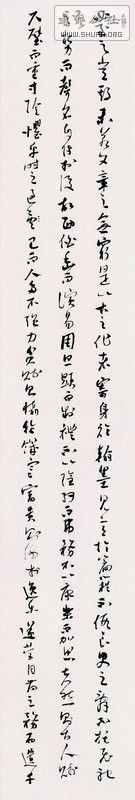 WWW.SHUFA.ORG
之常期未若文章之無窮是以古之作者寄身於翰墨見意於篇籍不假良史之辭不託飛馳
之勢而聲名自傳於後故西伯幽而演易周旦顯而制禮不以隱約而弗務不以康樂而加思夫然則古人賤
尺璧而重寸陰懼乎時之過已而人多不強力貧賤則懾於饑寒富貴則流於逸樂遂營目前之務而遺千